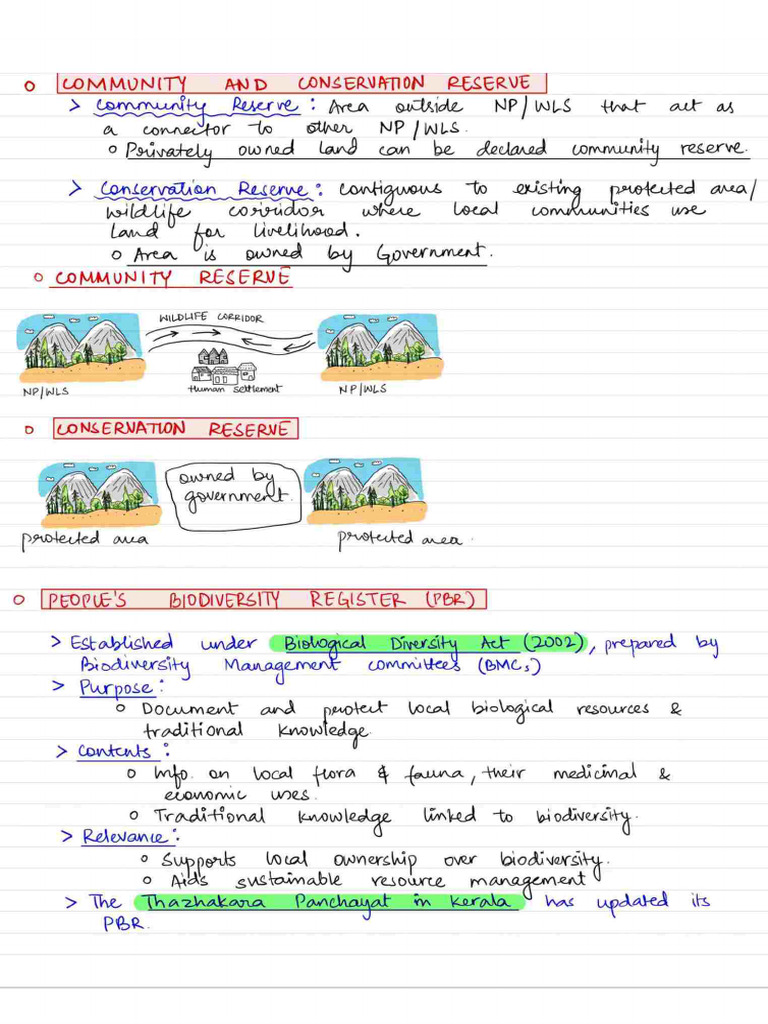 COMMUNITY AND CONSERVATION RESERVE
> Community Reserve: Area outside NP/WLS that act as
a connector to other NP/WLS.
o Privately owned land can be declared community reserve.
> Conservation Reserve: contiguous to existing protected area/
wildlife corridor where local communities use
land for livelihood.
o Area is owned by Government.
o COMMUNITY RESERVE
WILDLIFE CORRIDOR
NP/WLS
Human settlement
NP/WLS
o CONSERVATION RESERVE
owned by
government.
protected area
protected area.
o PEOPLE'S BIODIVERSITY REGISTER (PBR)
> Established under Biological Diversity Act (2002), prepared by
Biodiversity Management committees (BMCs)
> Purpose:
o Document and protect local biological resources &
traditional knowledge.
> Contents:
o Info. on local flora & fauna, their medicinal &
economic uses.
o Traditional knowledge linked to biodiversity.
> Relevance:
o Supports local ownership over biodiversity.
o Aids sustainable resource management
> The Thazhakara Panchayat in Kerala has updated its
PBR.